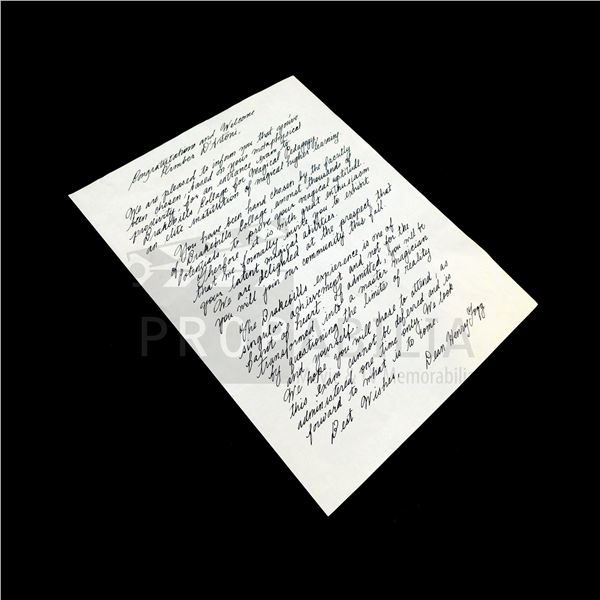 Congratulations and Welcome
Kimber D'Antoni.
We are pleased to inform you that you've
been chosen based on your metaphysical
proclivity for an entrance exam to
Brakebills College for Magical Pedagogy,
an elite institution of magical higher learning
You have been hand chosen by the faculty
of Brakebills College amongst thousands of
potentials to prove your magical aptitude.
Therefore it is with great enthusiasm
that I formally invite you to exhibit
your latent magical abilities.
We are delighted at the prospect that
you will join our community this fall.
The Brakebills experience is one of
singular achievement and not for the
faint of heart. If admitted, you will be
transformed into a master magician
by questioning the limits of reality
and yourself.
We hope you will chose to attend, as
this exam cannot be deferred and is
administered one time only. We look
forward to what is to come
Best Wishes,
Dean Henry Fogg
PROPABILIA
Memorabilia